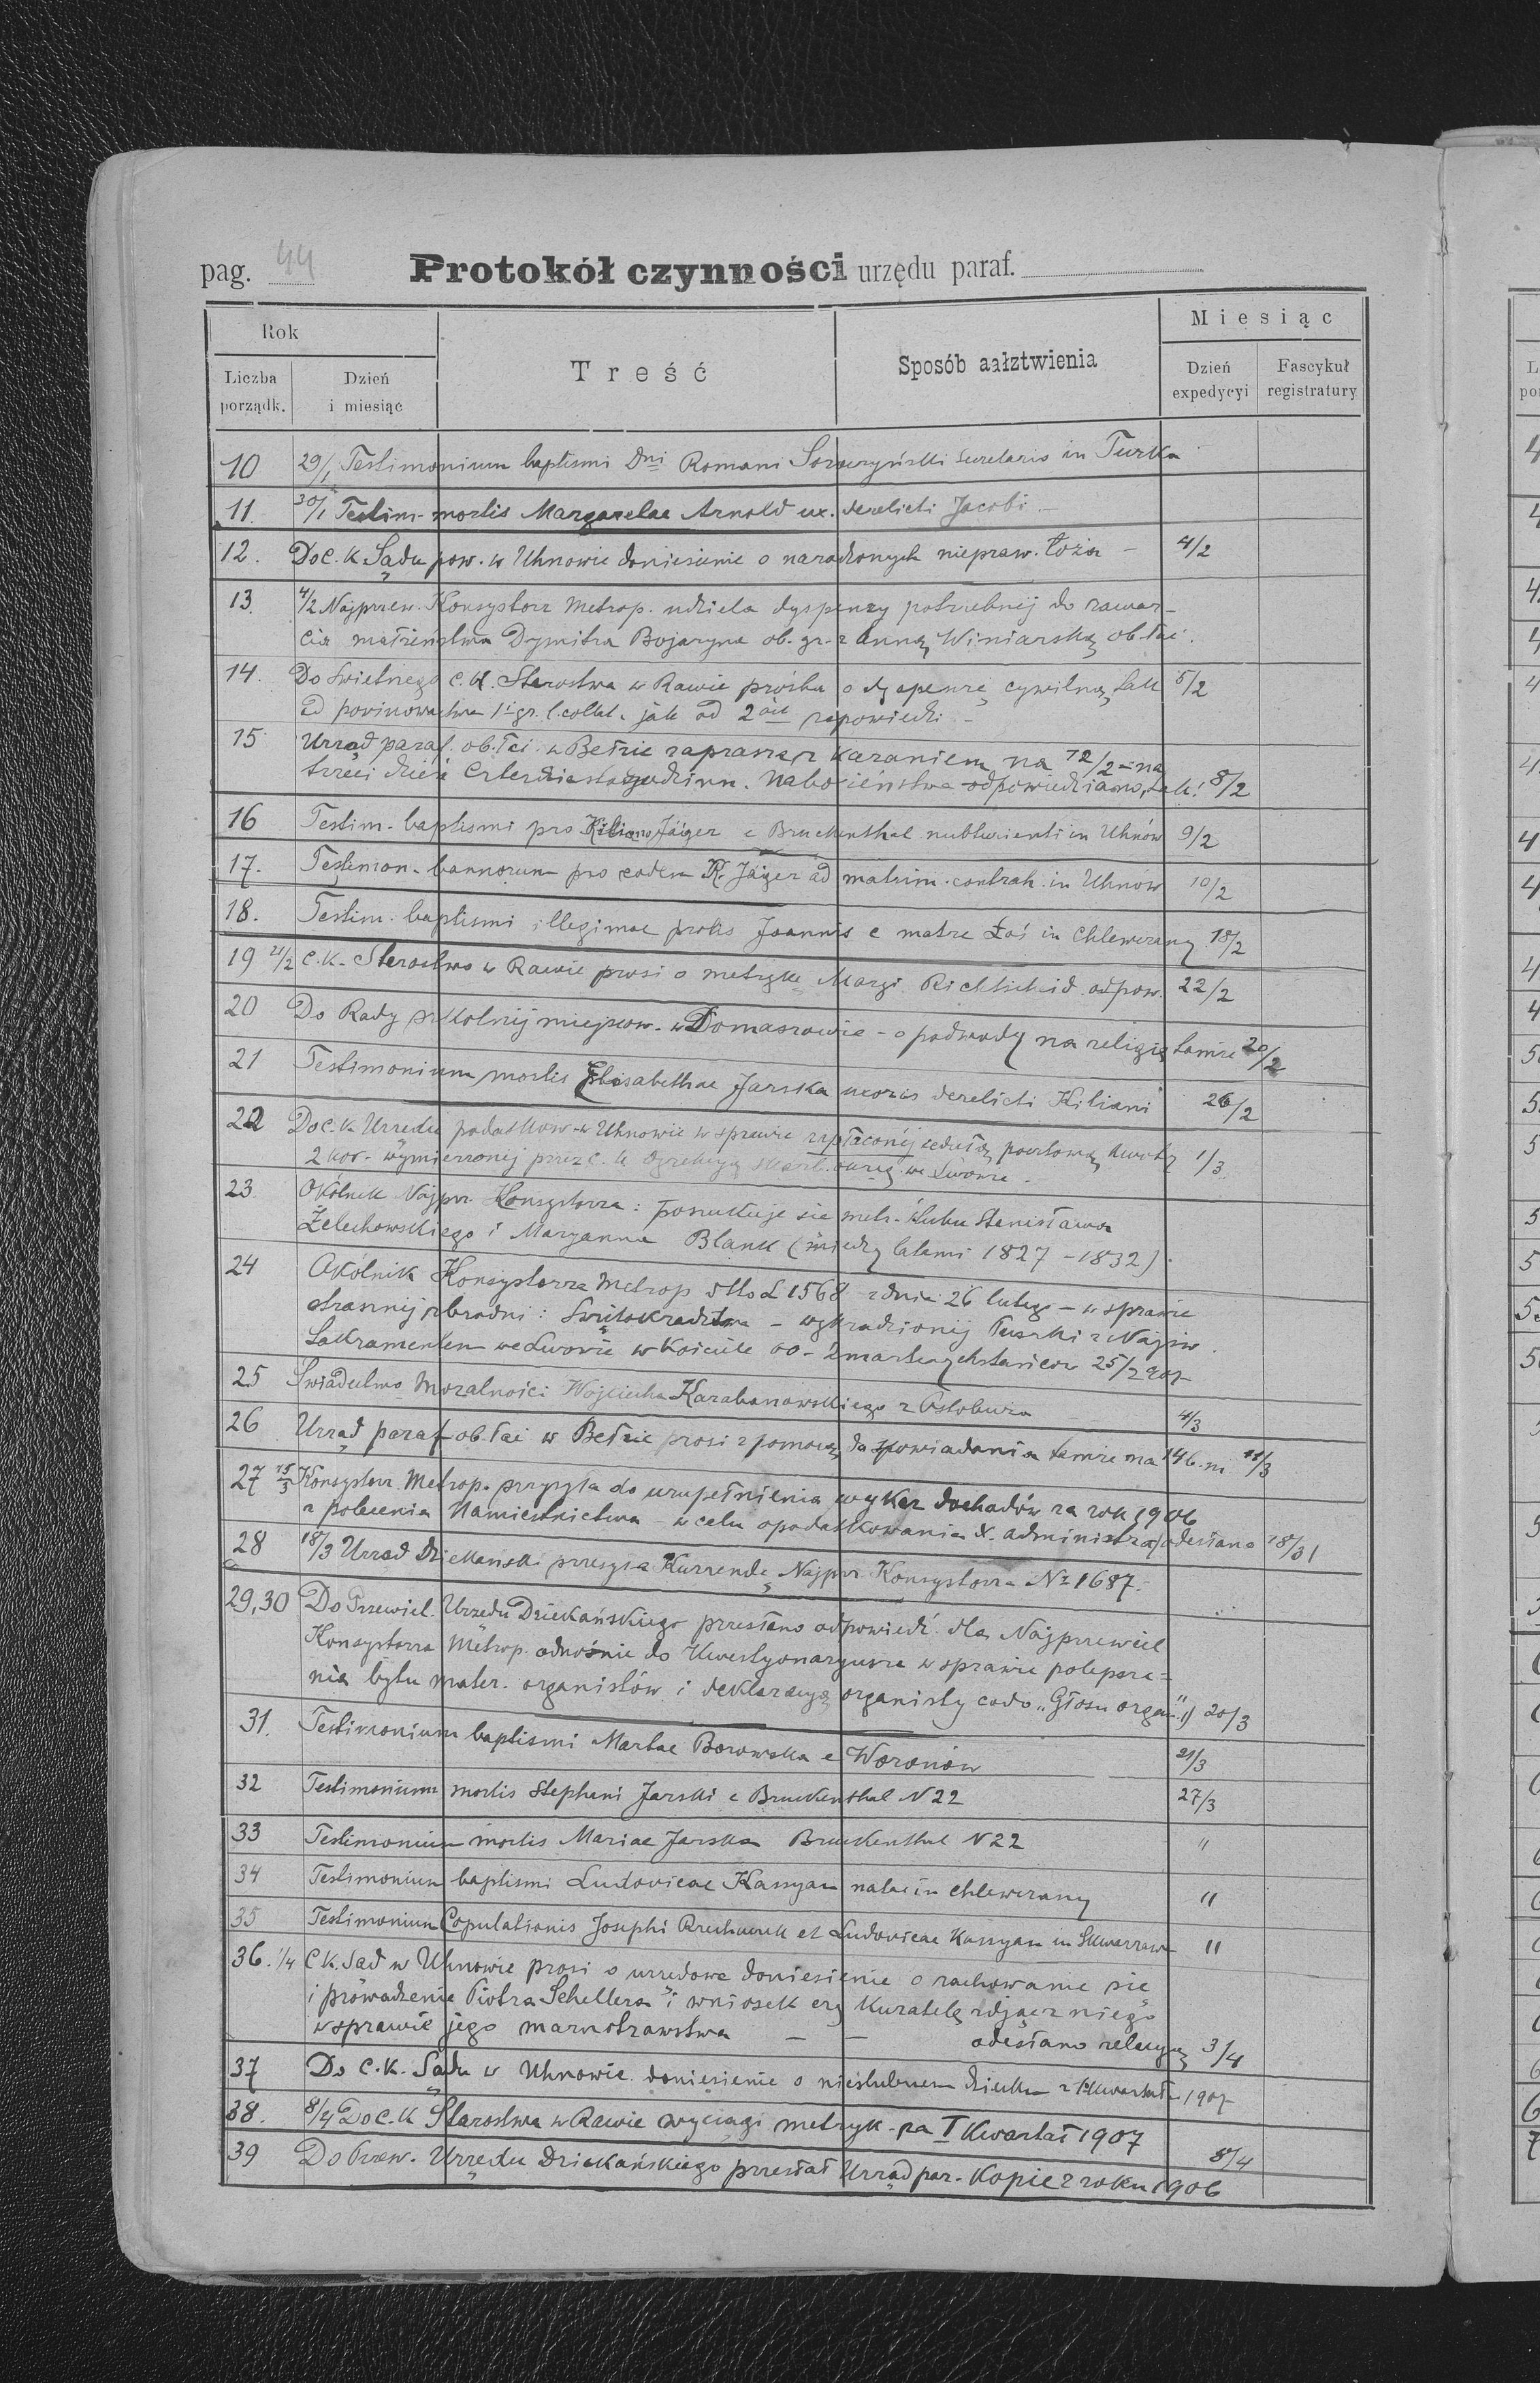 pag. 44 Protokół czynności urzędu paraf.
Rok
Liczba porządk.
Dzień i miesiąc
Treść
Sposób aałztwienia
Miesiąc
Dzień expedycyi
Fascykuł registratury
10 29/1 Testimonium baptismi Dni Romani in Turka
11. 30/1 Testim. mortis Margaretae Arnold ux. derelicti Jacobi.
12. Do C. K Sądu pow. w Uhnowie doniesienie o narodzonych niepraw. łoża - 4/2
13. 4/2 Najprzew. Konsystorz Metrop. udziela dyspenzy potrzebnej do zawar-
cia małżeństwa Dymitra Bojaryna ob. gr. z Anną Winiarską ob. łac.
14. Do Świetnego C. K. Starostwa w Rawie prośba o dyspenzę cywilną tak 5/2
od powinowactwa 1 gr. l. collat. jak od 2 zapowiedzi -
15 Urząd paraf. ob. łac. w Bełzie zaprasza z kazaniem na 12/2 - na
trzeci dzień Czterdziestogodzinn. Nabożeństwa - odpowiedziano, tak! 8/2
16 Testim. baptismi pro Kiliano Jäger e Bruckenthal nubturienti in Uhnów 9/2
17. Testimon. bannorum pro eodem K. Jäger ad matrim. contrah. in Uhnów 10/2
18. Testim. baptismi illegimae prolis Joannis e matre Łoś in Chlewczany 18/2
19 21/2 C. K. Starostwo w Rawie prosi o metrykę Margi. odpow. 22/2
20 Do Rady szkolnej miejscow. w Domaszowie - o podwody na religię tamże 20/2
21 Testimonium mortis Elisabethae Jarska uxoris derelicti Kiliani 26/2
22 Do C. K. Urzędu podatkow. w Uhnowie w sprawie zapłaconej cedułą pocztową kwoty 1/3
2 kor. wymierzonej przez C. K dyrekcyę skarb. okręg. we Lwowie -
23 Okólnik Najprz. Konsystorza: poszukuje się metr. ślubu Stanisława
Żelechowskiego i Maryanna Blank (między latami 1827 - 1832).
24 Okólnik Konsystorza Metrop dtto L 1568 z dnia 26 lutego - w sprawie
strasznej zbrodni: Świętokradztwa - wykradzionej Puszki z Najśw.
Sakramentem we Lwowie w kościele OO. Zmartwychstańców 25/2 907
25 Świadectwo Moralności Wojciecha Karabanowskiego z Ostobuża 4/3
26 Urząd paraf ob. łac w Bełzie prosi z pomocą do spowiadania tamże na 14 b. m. 11/3
27 15/3 Konsystorz Metrop. przysyła do uzupełnienia wykaz dochodów za rok 1906
z polecenia Namiestnictwa - w celu opodatkowania X. administra odesłano 18/3
28 18/3 Urząd Dziekański przesyła Kurrendę Najprz Konsystorza Nr 1687.
29,30 Do Przewiel. Urzędu Dziekańskiego przesłano odpowiedź dla Najprzewiel
Konsystorza Metrop. odnośnie do Kwestyonaryusza w sprawie polepsze-
nia bytu mater. organistów i deklaracyę organisty co do „Głosu organ." 20/3
31. Testimonium baptismi Martae Borowska e Woronów 21/3
32 Testimonium mortis Stephani Jarski e Bruckenthal N 22 27/3
33 Testimonium mortis Mariae Jarska Bruckenthal N 22 "
34 Testimonium baptismi Ludovicae Kassyan natae in Chlewczany "
35 Testimonium Copulationis Josephi et Ludovicae Kassyan in "
36. 1/4 C K. Sąd w Uhnowie prosi o urzędowe doniesienie o zachowanie się
i prowadzenie Piotra Schellera i wniosek czy Kuratelę zdjąć z niego
w sprawie jego marnotrawstwa - - odesłano relacyę 3/4
37 Do C. K. Sądu w Uhnowie doniesienie o nieślubnem dziecku z I kwartału 1907
38. 8/4 Do C. K Starostwa w Rawie wyciągi metryk. za I Kwartał 1907
39 Do Przew. Urzędu Dziekańskiego przesłał Urząd par. Kopie z roku 1906 8/4